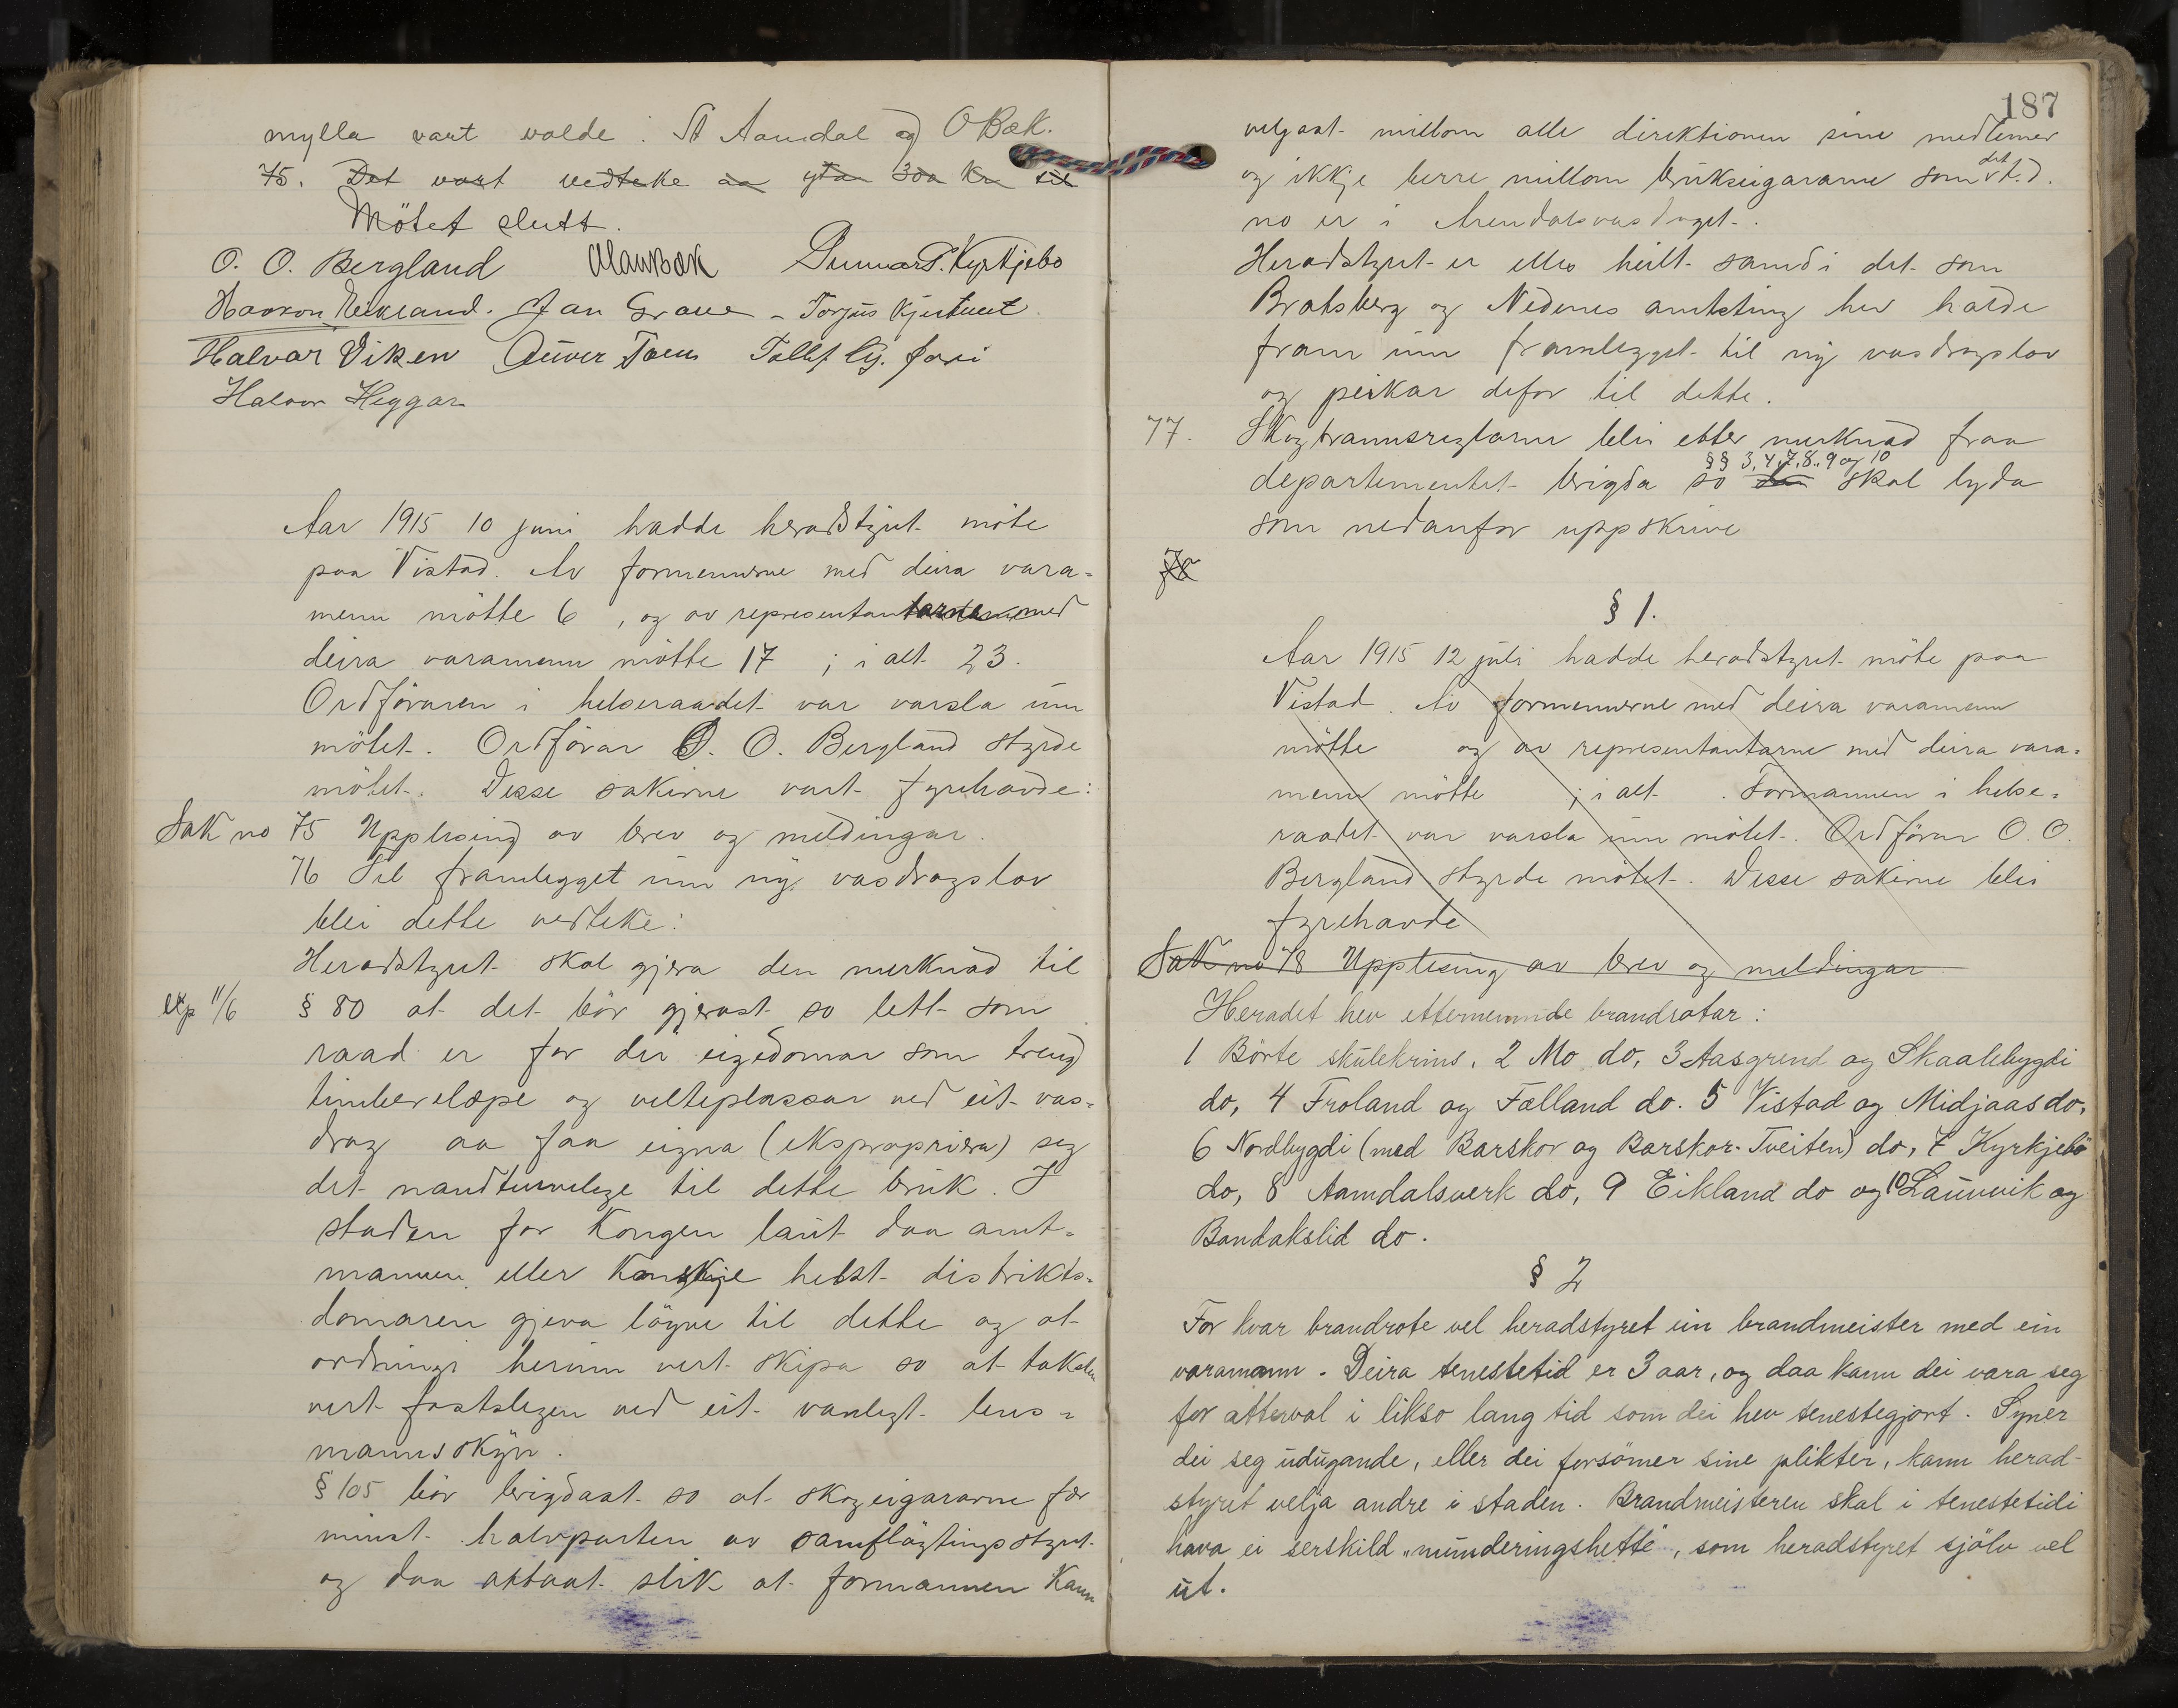 mylla vart valde: St Aamdal og O Bæk.
75. Det vart vedteke aa yta 300 Kr til
Mötet slutt.
O. O. Bergland Olav Bæk Gunnar S. Kyrkjebö
Haavon Eikland. Jan Grave - Torjus Kjertveit.
Halvar Viken Ånver Tollef Gj.
Halvor Heggar
Aar 1915 10 juni hadde heradstyret möte
paa Vistad. Av formennerne med deira vara=
menn mötte 6, og av representantarne med
deira varamenn mötte 17 ; i alt 23.
Ordföraren i helseraadet var varsla um
mötet. Ordförar O. O. Bergland styrde
mötet. Desse sakirne vart fyrehavde:
Sak no 75 Upplesing av brev og meldingar.
76 Til framlegget um ny vasdragslov
blei dette vedteke:
Heradstyret skal gjera den merknad til
exp 11/6 § 80 at det bör gjerast so lett som
raad er for dei eigedomar som treng
timberelæpe og velteplassar ved eit vas=
drag aa faa eigna (ekspropriera) seg
det naudturvelege til dette bruk. I
staden for Kongen laut daa amt=
mannen eller kanskje helst distrikts=
domaren gjeva löyve til dette og at
ordningi herum vert skipa so at taksten
vert fastslegen ved eit vanlegt lens=
mannsskyn.
§ 105 bör brigdast so at skogeigararne fær
minst halvparten av samflöytingsstyret
og daa aktaat slik at formannen kann
187
veljast millom alle direktionen sine medlemer
og ikkje berre millom brukseigararne som det t.d.
no er i Arendalsvasdraget.
Heradstyret er elles heilt samd i det som
Bratsberg og Nedenes amtsting hev halde
fram um framlegget til ny vasdragslov
og peikar defor til dette.
77. Skogbrannsreglarne blei etter merknad fraa
§§ 3, 4, 7, 8, 9 og 10
departementet brigda so dei skal lyda
som nedanfor uppskrive
78
§ 1.
Aar 1915 12 juli hadde heradstyret möte paa
Vistad. Av formennerne med deira varamenn
mötte og av representantarne med deira vara=
menn mötte ; i alt . Formannen i helse=
raadet var varsla um mötet. Ordförar O. O.
Bergland styrde mötet. Desse sakirne blei
fyrehavde
Sak no 78 Upplesing av brev og meldingar
Heradet hev etternemnde brandrotar:
1 Börte skulekrins, 2 Mo do, 3 Aasgrend og Skaalebygdi
do, 4 Froland og Fælland do. 5 Vistad og Midjaas do,
6 Nordbygdi (med Barskor og Barskor-Tveiten) do, 7 Kyrkjebö
do, 8 Aamdalsverk do, 9 Eikland do og 10 Lauvvik og
Bandakslid do.
§ 2
For kvar brandrote vel heradstyret ein brandmeister med ein
varamann. Deira tenestetid er 3 aar, og daa kann dei vara seg
for atterval i likso lang tid som dei hev tenestegjort. Syner
dei seg udugande, eller dei forsömer sine plikter, kann herad-
styret velja andre i staden. Brandmeisteren skal i tenestetidi
hava ei serskild „munderingshette", som heradstyret sjölv vel
ut.